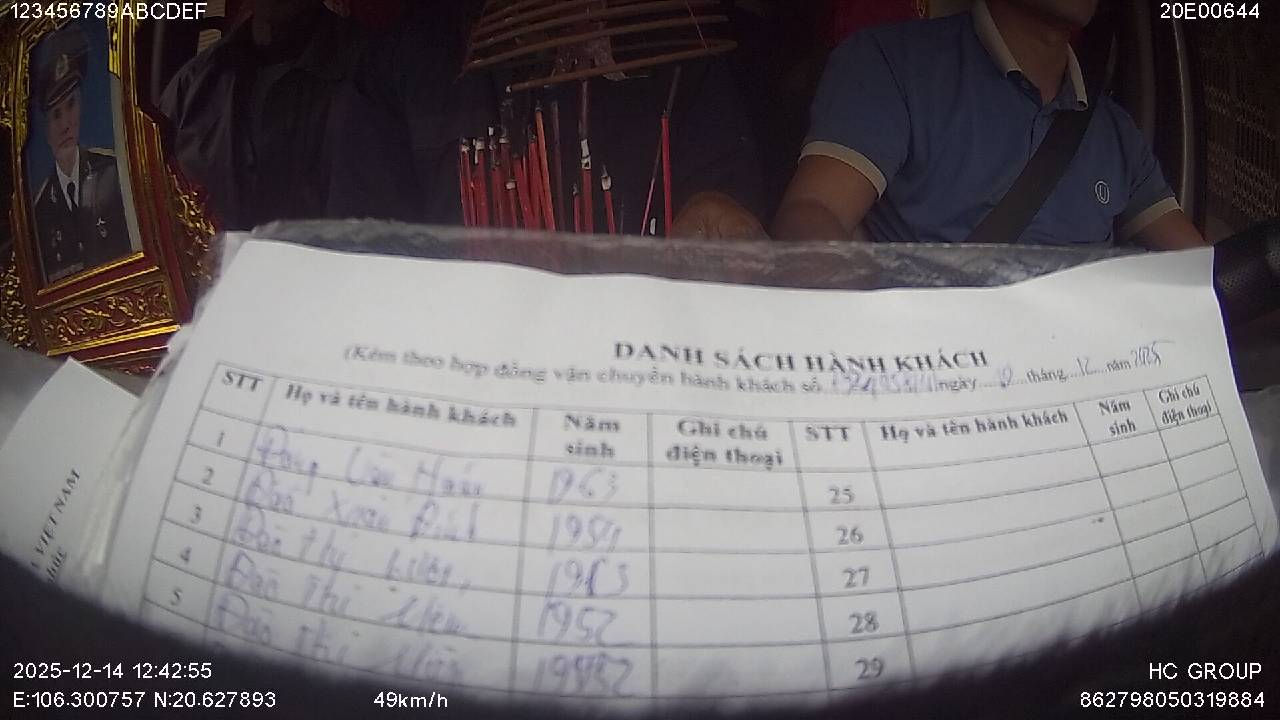 123456789ABCDEF
20E00644
DANH SÁCH HÀNH KHÁCH
(Kèm theo hợp đồng vận chuyển hành khách số ngày tháng 12 năm 2025
STT Họ và tên hành khách Năm sinh Ghi chú điện thoại STT Họ và tên hành khách Năm sinh Ghi chú điện thoại
1 1963 25
2 Đào Xuân 1954 26
3 Đào Thị 1963 27
4 Đào Thị 1952 28
5 Đào Thị 29
VIỆT NAM
2025-12-14 12:42:55
E:106.300757 N:20.627893 49km/h
HC GROUP
862798050319884